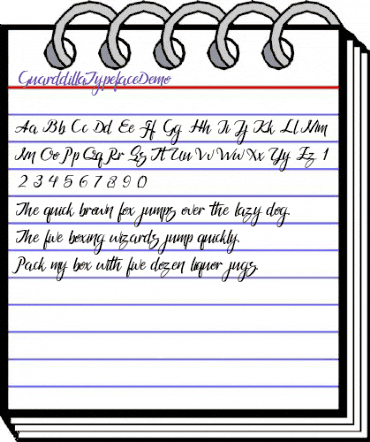 GuarddillaTypefaceDemo
Aa Bb Cc Dd Ee Ff Gg Hh Ii Jj Kk Ll Mm
Nn Oo Pp Qq Rr Ss Tt Uu Vv Ww Xx Yy Zz 1
2 3 4 5 6 7 8 9 0
The quick brown fox jumps over the lazy dog.
The five boxing wizards jump quickly.
Pack my box with five dozen liquor jugs.